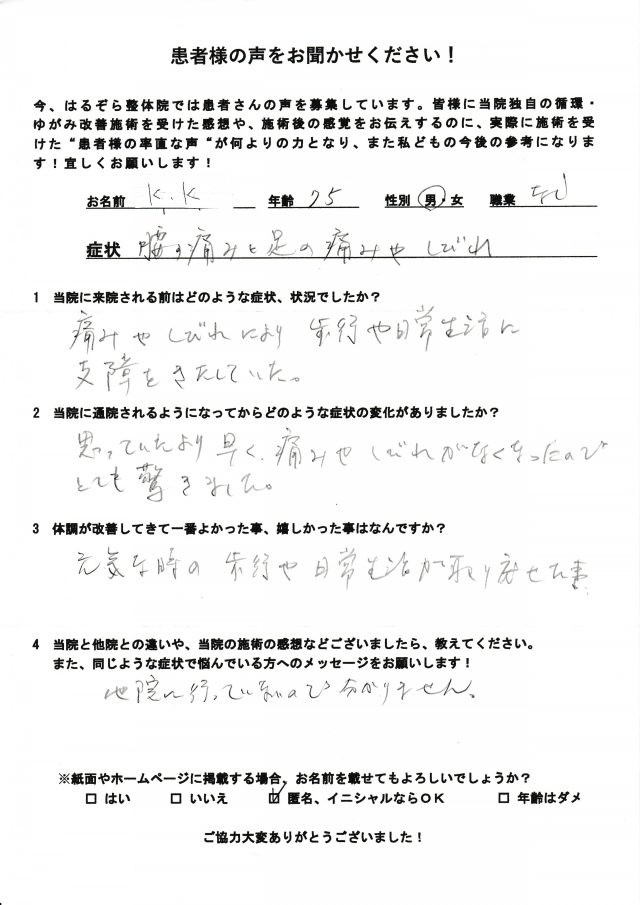 患者様の声をお聞かせください！
今、はるぞら整体院では患者さんの声を募集しています。皆様に当院独自の循環・
ゆがみ改善施術を受けた感想や、施術後の感覚をお伝えするのに、実際に施術を受
けた“患者様の率直な声“が何よりの力となり、また私どもの今後の参考になりま
す！宜しくお願いします！
お名前 K.K 年齢 75 性別 男・女 職業 なし
症状 腰の痛みと足の痛みやしびれ
1 当院に来院される前はどのような症状、状況でしたか？
痛みやしびれにより 歩行や日常生活に
支障をきたしていた。
2 当院に通院されるようになってからどのような症状の変化がありましたか？
思っていたより早く、痛みや しびれがなくなったので
とても驚きました。
3 体調が改善してきて一番よかった事、嬉しかった事はなんですか？
元気な時の 歩行や 日常生活が取り戻せた事
4 当院と他院との違いや、当院の施術の感想などございましたら、教えてください。
また、同じような症状で悩んでいる方へのメッセージをお願いします！
他院に行っていないので分かりません。
※紙面やホームページに掲載する場合、お名前を載せてもよろしいでしょうか？
□ はい □ いいえ ☑ 匿名、イニシャルならOK □ 年齢はダメ
ご協力大変ありがとうございました！